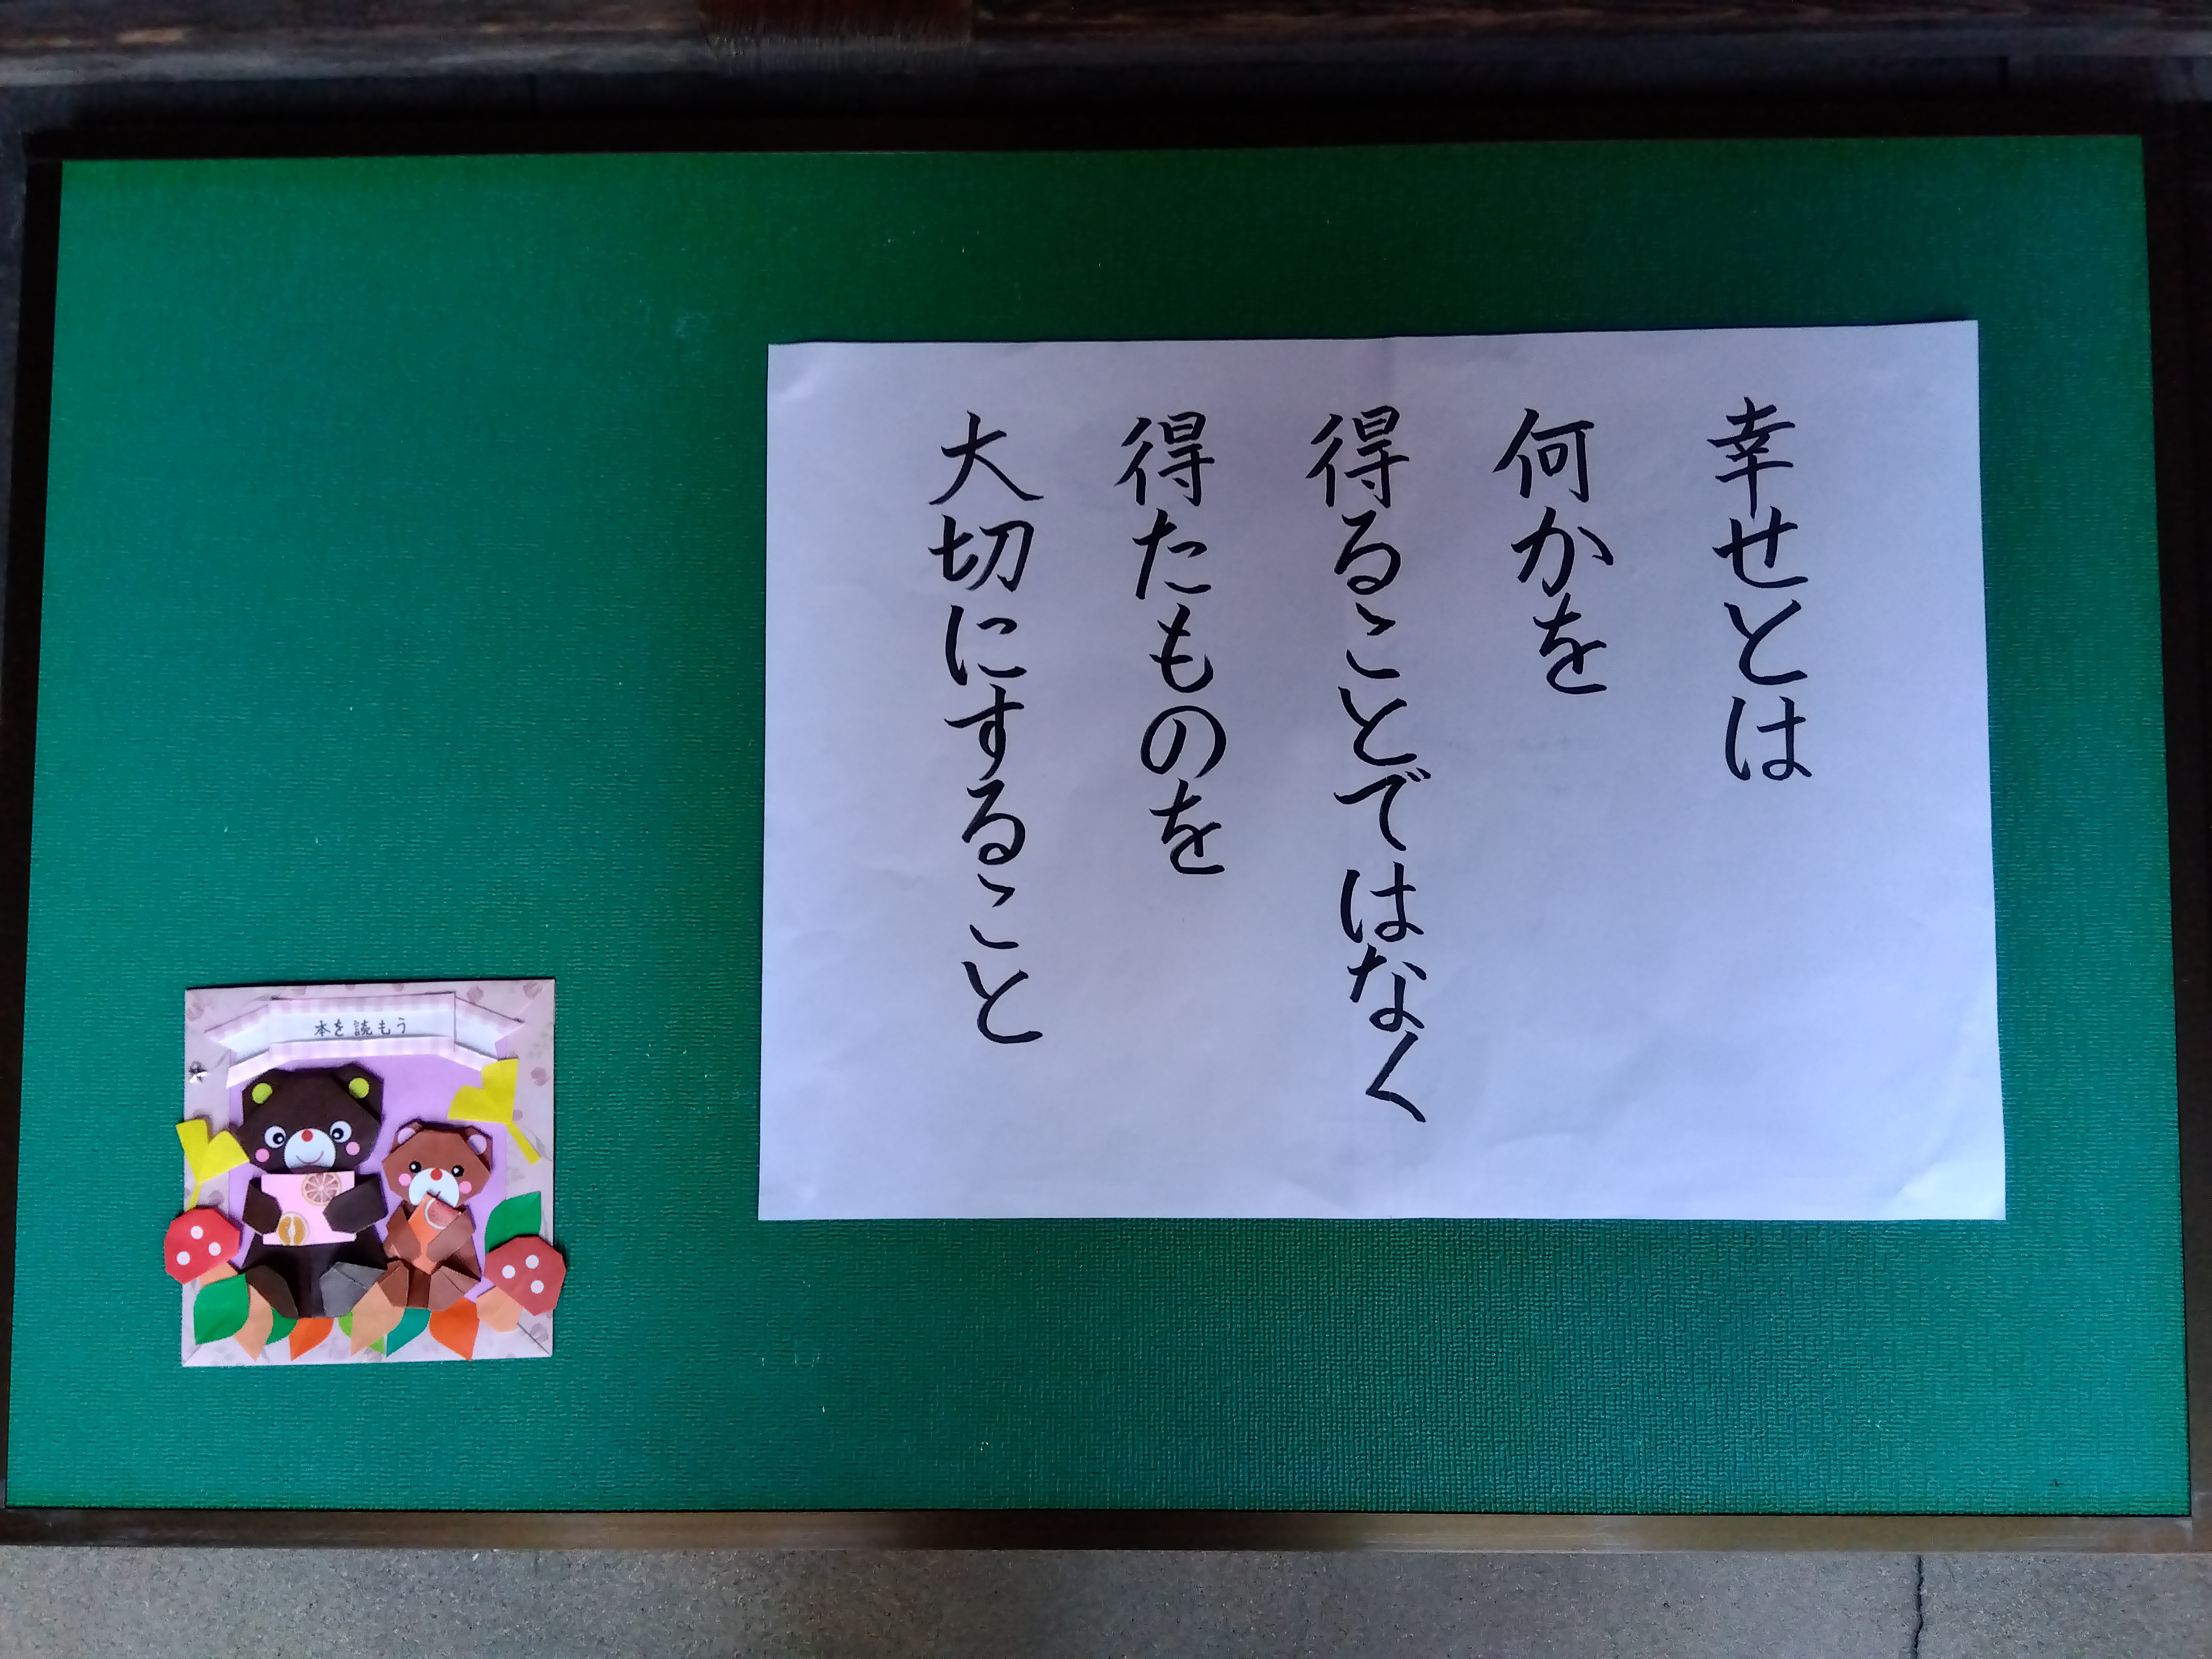 幸せとは
何かを
得ることではなく
得たものを
大切にすること
本を読もう